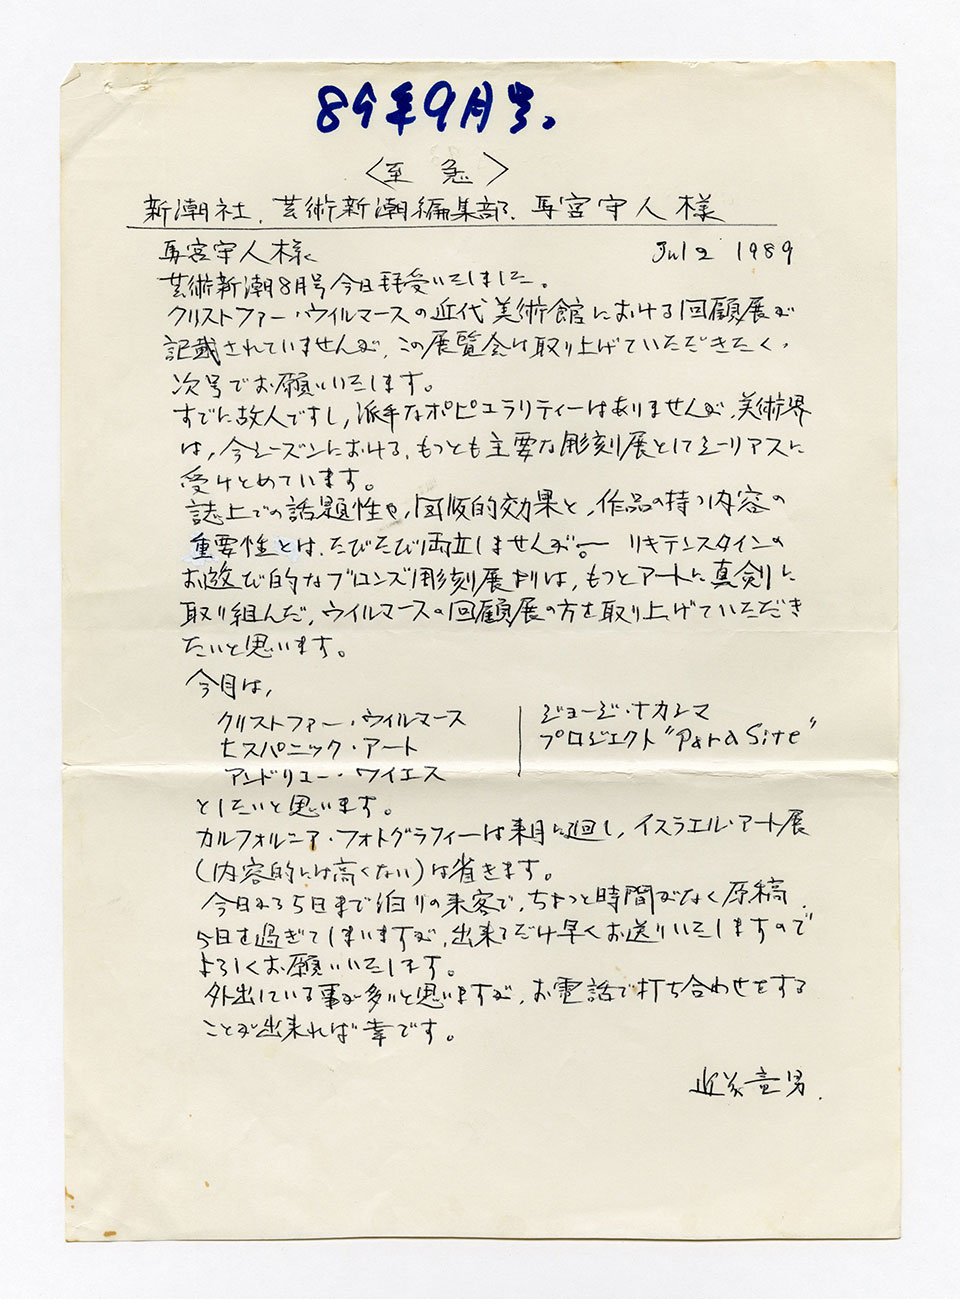 89年9月号。
〈至急〉
新潮社、芸術新潮編集部、馬宮守人様
馬宮守人様 Jul 2 1989
芸術新潮8月号今日拝受いたしました。
クリストファー・ウイルマースの近代美術館における回顧展が
記載されていませんが、この展覧会は取り上げていただきたく、
次号でお願いいたします。
すでに故人ですし、派手なポピュラリティーはありませんが、美術界
は、今シーズンにおける、もっとも主要な彫刻展としてシーリアスに
受けとめています。
誌上での話題性や、図版的効果と、作品の持つ内容の
重要性とは、たびたび両立しませんが。― リキテンスタインの
お遊び的なブロンズ彫刻展よりは、もっとアートに真剣に
取り組んだ、ウイルマースの回顧展の方を取り上げていただき
たいと思います。
今月は、
クリストファー・ウィルマース
ヒスパニック・アート
アンドリュー・ワイエス
ジョージ・ナカシマ
プロジェクト"Para Site"
としたいと思います。
カルフォルニア・フォトグラフィーは来月に廻し、イスラエル・アート展
(内容的には高くない)は省きます。
今日から5日まで泊りの来客で、ちょっと時間がなく原稿、
5日を過ぎてしまいますが、出来るだけ早くお送りいたしますので
よろしくお願いいたします。
外出している事が多いと思いますが、お電話で打ち合わせをする
ことが出来れば幸です。
近藤竜男